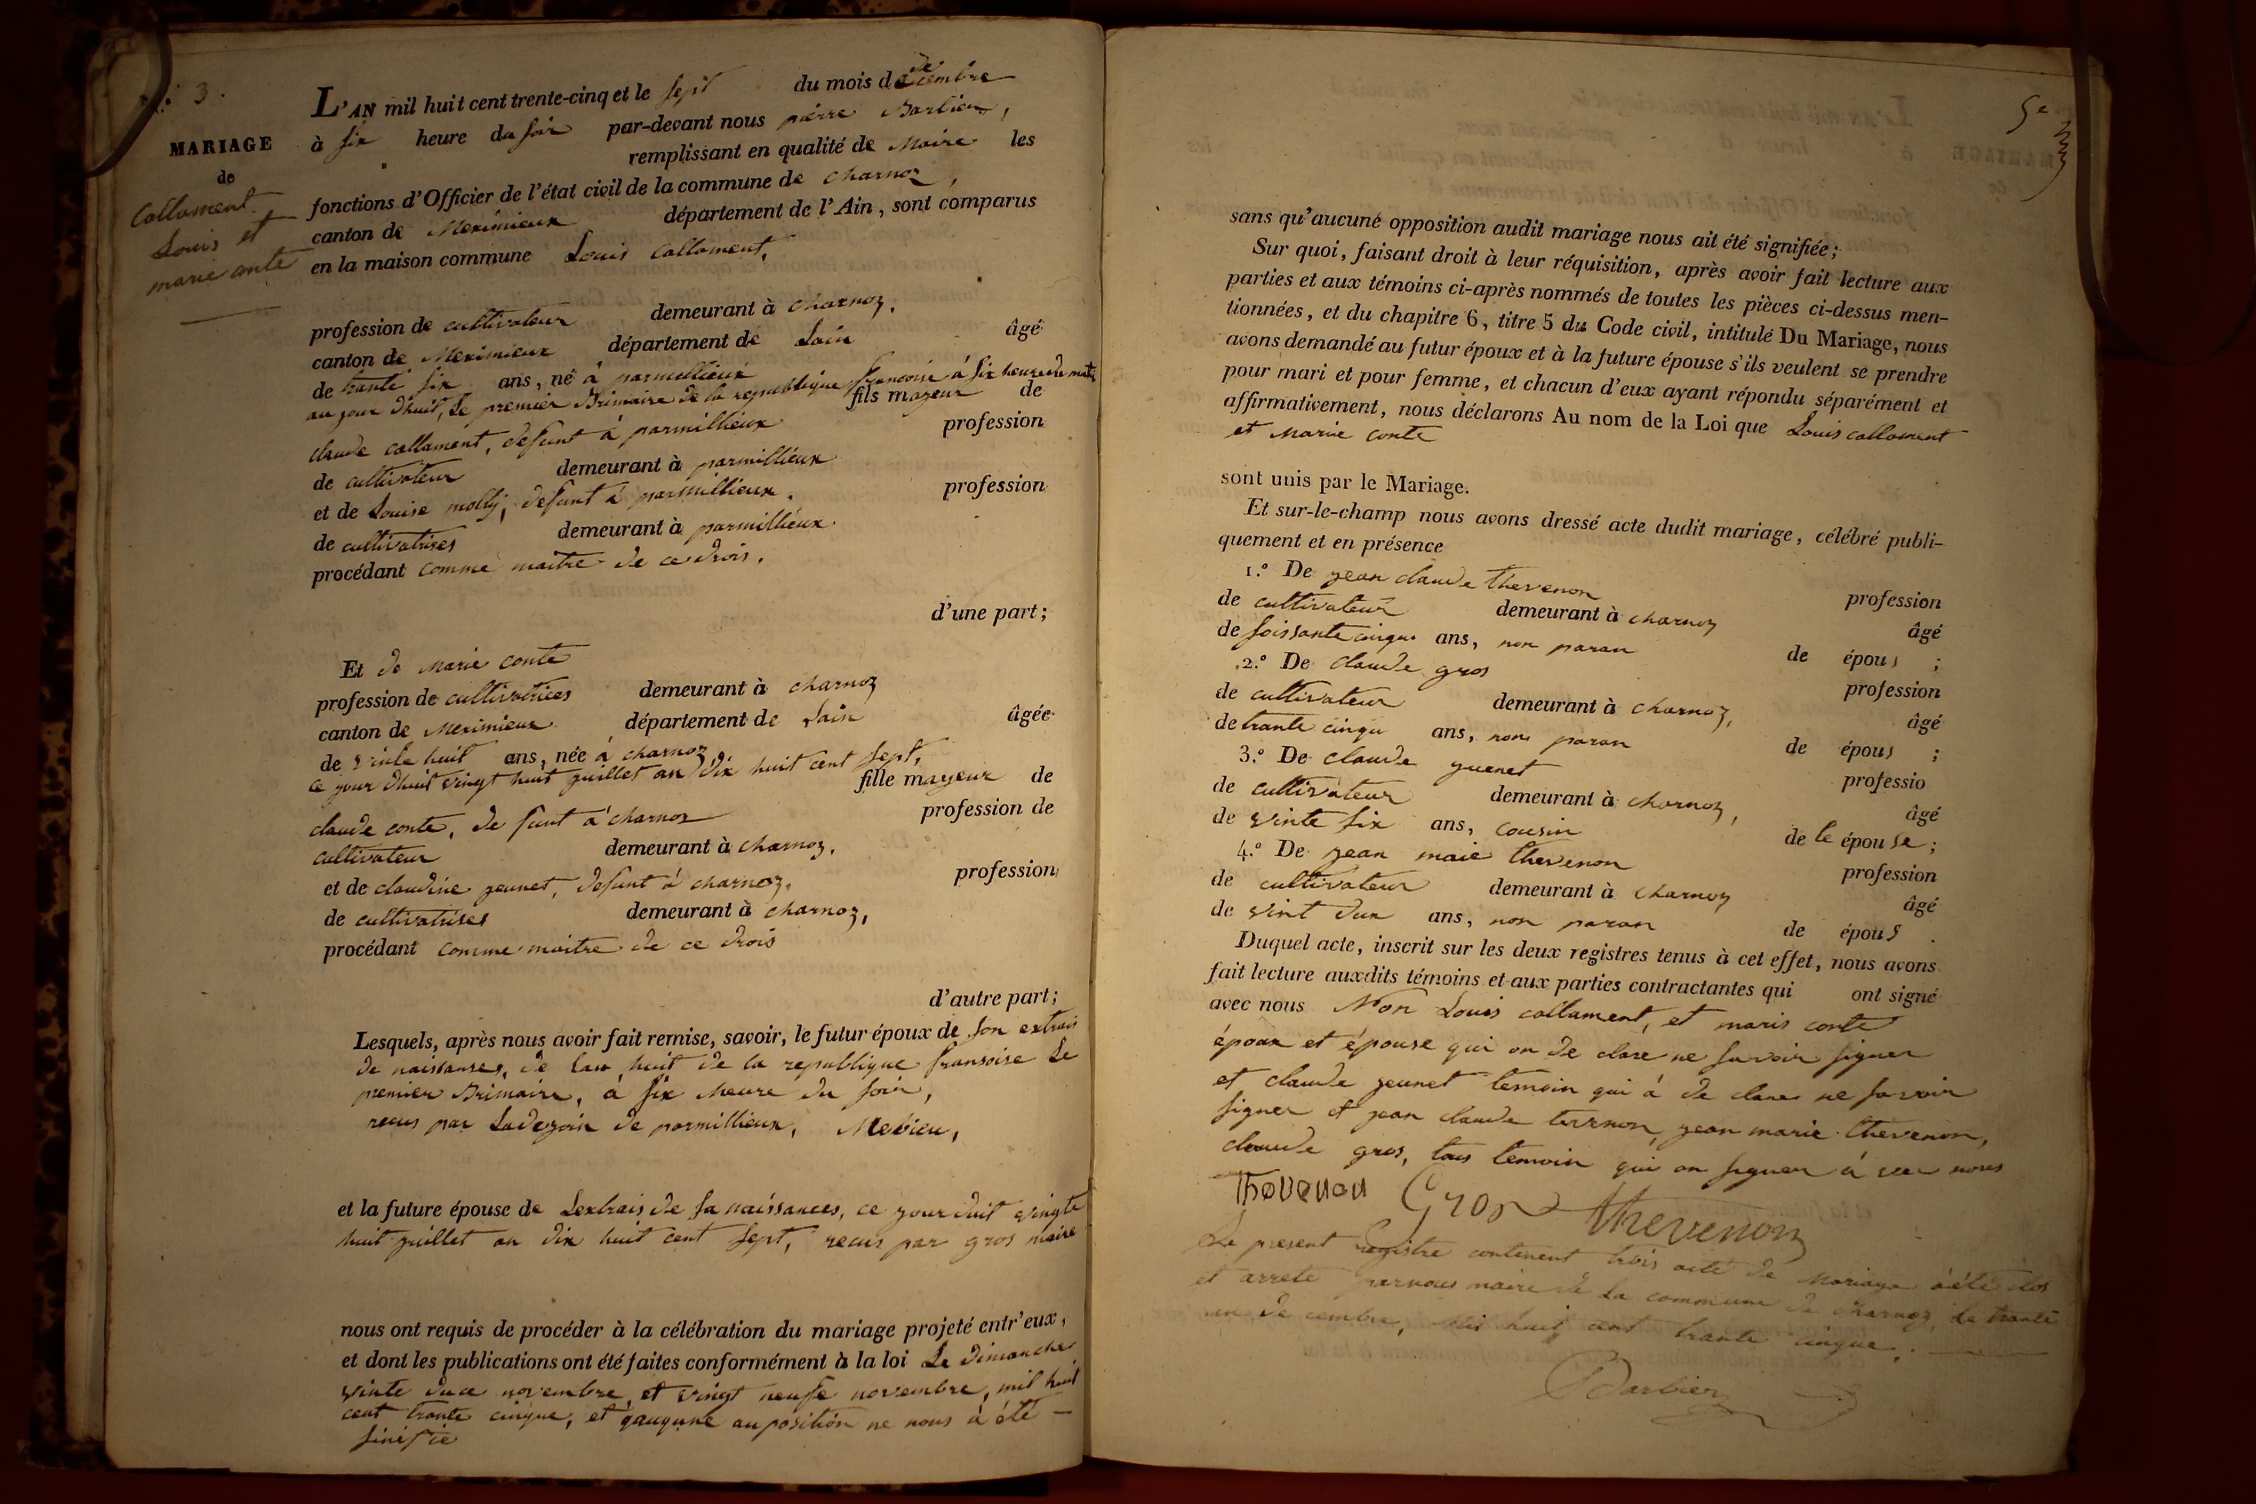 N.º 3.
MARIAGE
de
Colloment
Louis et
marie conte
L'AN mil huit cent trente-cinq et le sept du mois de décembre
à six heure du soir par-devant nous pierre Barbier,
remplissant en qualité de Maire les
fonctions d'Officier de l'état civil de la commune de charnoz,
canton de Meximieux département de l'Ain, sont comparus
en la maison commune Louis Collament,
profession de cultivateur demeurant à charnoz,
canton de Meximieux département de Lain âgé
de trante six ans, né à parmillieux
au jour dhuit, Le premier Brimaire de la republique francoise à six heure du matin
fils mayeur de
claude collament, defunt à parmillieux profession
de cultivateur demeurant à parmillieux
et de Louise molly, defunt à parmillieux, profession
de cultivatrises demeurant à parmillieux
procédant comme maitre de ce drois,
d'une part;
Et de Marie conte
profession de cultivatrices demeurant à charnoz
canton de Meximieux département de Lain âgée
de vinte huit ans, née à charnoz
ce jour dhuit vingt huit juillet an dix huit cent sept,
fille mayeur de
claude conte, de funt à charnoz profession de
cultivateur demeurant à charnoz,
et de claudine jeunet, defunt à charnoz, profession
de cultivatrises demeurant à charnoz,
procédant comme maitre de ce drois
d'autre part;
Lesquels, après nous avoir fait remise, savoir, le futur époux de son extrais
de naissanses, de lan huit de la republique fransoise Le
premier Brimaire, à six heure du soir,
recus par Ladejoin de parmillieux, Medieu,
et la future épouse de Lextrais de sa naissances, ce jour duit vingte
huit juillet an dix huit cent sept, recus par gros maire
nous ont requis de procéder à la célébration du mariage projeté entr'eux,
et dont les publications ont été faites conformément à la loi Le dimanche
vinte duce novembre, et vingt neufe novembre, mil huit
cent trante cinque, et qauqune auposition ne nous à été —
sinifie
5e
sans qu'aucune opposition audit mariage nous ait été signifiée;
Sur quoi, faisant droit à leur réquisition, après avoir fait lecture aux
parties et aux témoins ci-après nommés de toutes les pièces ci-dessus men-
tionnées, et du chapitre 6, titre 5 du Code civil, intitulé Du Mariage, nous
avons demandé au futur époux et à la future épouse s'ils veulent se prendre
pour mari et pour femme, et chacun d'eux ayant répondu séparément et
affirmativement, nous déclarons Au nom de la Loi que Louis collament
et Marie conte
sont unis par le Mariage.
Et sur-le-champ nous avons dressé acte dudit mariage, célébré publi-
quement et en présence
1.º De jean claude thevenon profession
de cultivateur demeurant à charnoz âgé
de soissante cinque ans, non paran de épous ;
2.º De claude gros profession
de cultivateur demeurant à charnoz, âgé
de trante cinqu ans, non paran de épous ;
3.º De claude juenet professio
de cultivateur demeurant à charnoz, âgé
de vinte six ans, cousin de le épouse;
4.º De jean maie thevenon profession
de cultivateur demeurant à charnoz âgé
de vint dux ans, non paran de épous .
Duquel acte, inscrit sur les deux registres tenus à cet effet, nous avons
fait lecture auxdits témoins et aux parties contractantes qui ont signé
avec nous Non Louis collament, et maris conte
époax et épouse qui on de clare ne savoir signer
et claude jeunet temoin qui à de clare ne savoir
signer et jean claude tevenon, jean marie thevenon,
claude gros, tous temoin qui on signer à vec nous
Thevenon Gros thevenon
Le present registre contenent trois acte de Mariage à été clos
et arreté par nous maire de La commune de charnoz, Le trante
un de cembre, mil huit cent trante cinque.
PBarbier